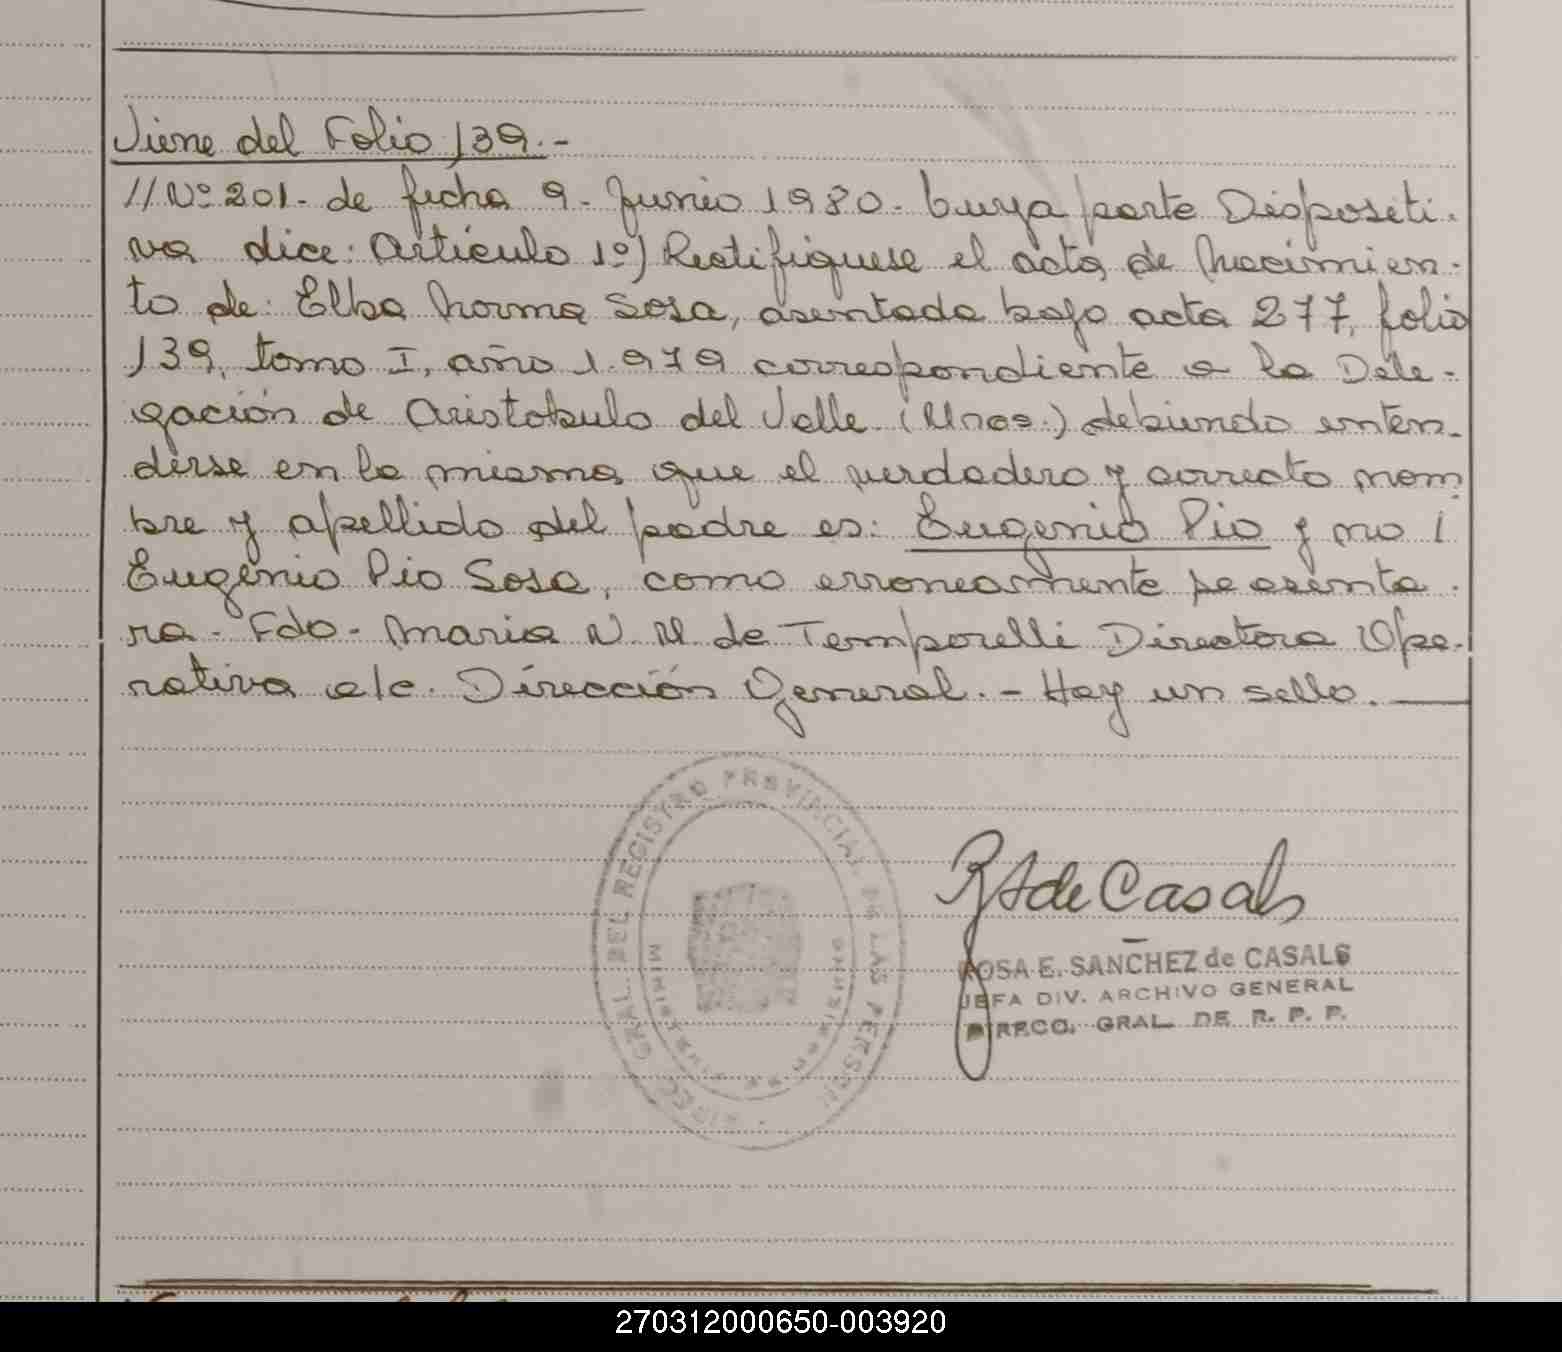 Viene del Folio 139.-
//Nº 201- de fecha 9- Junio 1980- Cuya parte Dispositi-
va dice: Artículo 1º) Rectifíquese el acta de Nacimien-
to de: Elba Norma Sosa, asentada bajo acta 277, folio
139, tomo I, año 1.979 correspondiente a la Dele-
gación de Aristobulo del Valle (Mnes.) debiendo enten-
derse en la misma que el verdadero y correcto nom
bre y apellido del padre es: Eugenio Pio y no
Eugenio Pio Sosa, como erroneamente se asenta-
ra- Fdo- Maria N. N. de Temporelli Directora Ope-
rativa a/c. Dirección General.- Hay un sello.
DIREC. GRAL. DEL REGISTRO PROVINCIAL DE LAS PERSON
R S de Casals
ROSA E. SANCHEZ de CASALS
JEFA DIV. ARCHIVO GENERAL
DIRECC. GRAL. DE R. P. P.
270312000650-003920